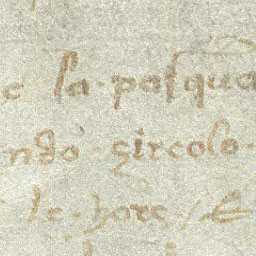 c la · pasqua
ndo circolo ·
le · hore / &